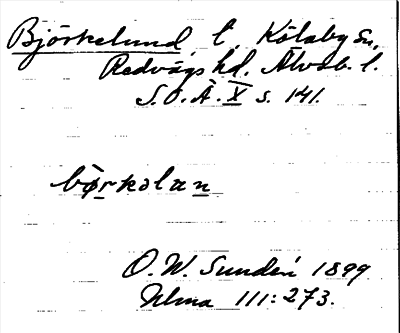 Björkelund, t. Kölaby sn,
Redvägs hd. Älvsb. l.
S. O. Ä. X s. 141.
bø̀rkolan
O. W. Sundén 1899
Ulma 111:273.